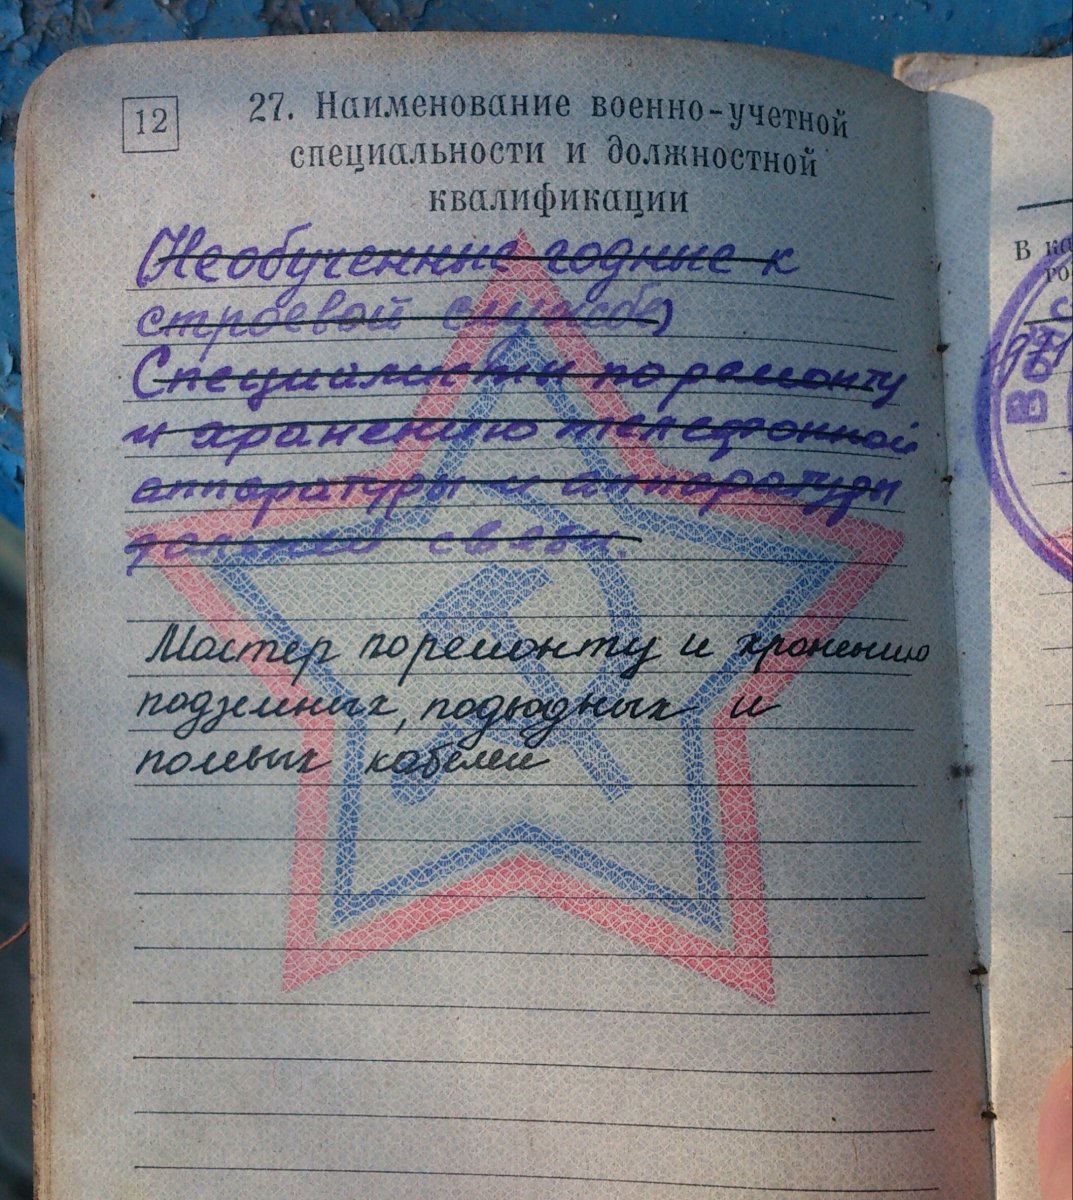 12
27. Наименование военно-учетной
специальности и должностной
квалификации
(Необученные годные к
строевой службе)
Специалисты по ремонту
и хранению телефонной
аппаратуры и аппаратуры
дальней связи.
Мастер по ремонту и хранению
подземных, подводных и
полевых кабелей
В